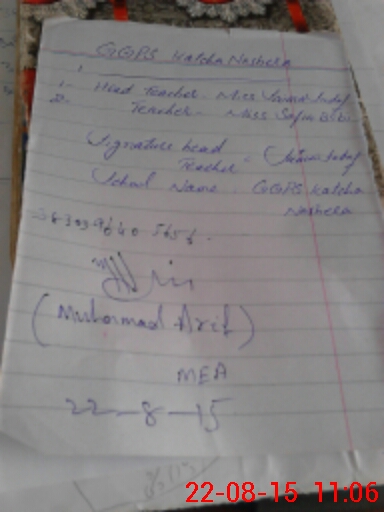 GGPS Katcha Nashera
1- Head Teacher - Miss
2- Teacher - Miss Safia Bibi
Signature head
Teacher -
School Name : GGPS Katcha
Nashera
(Muhammad Arif)
MEA
22-8-15
22-08-15 11:06